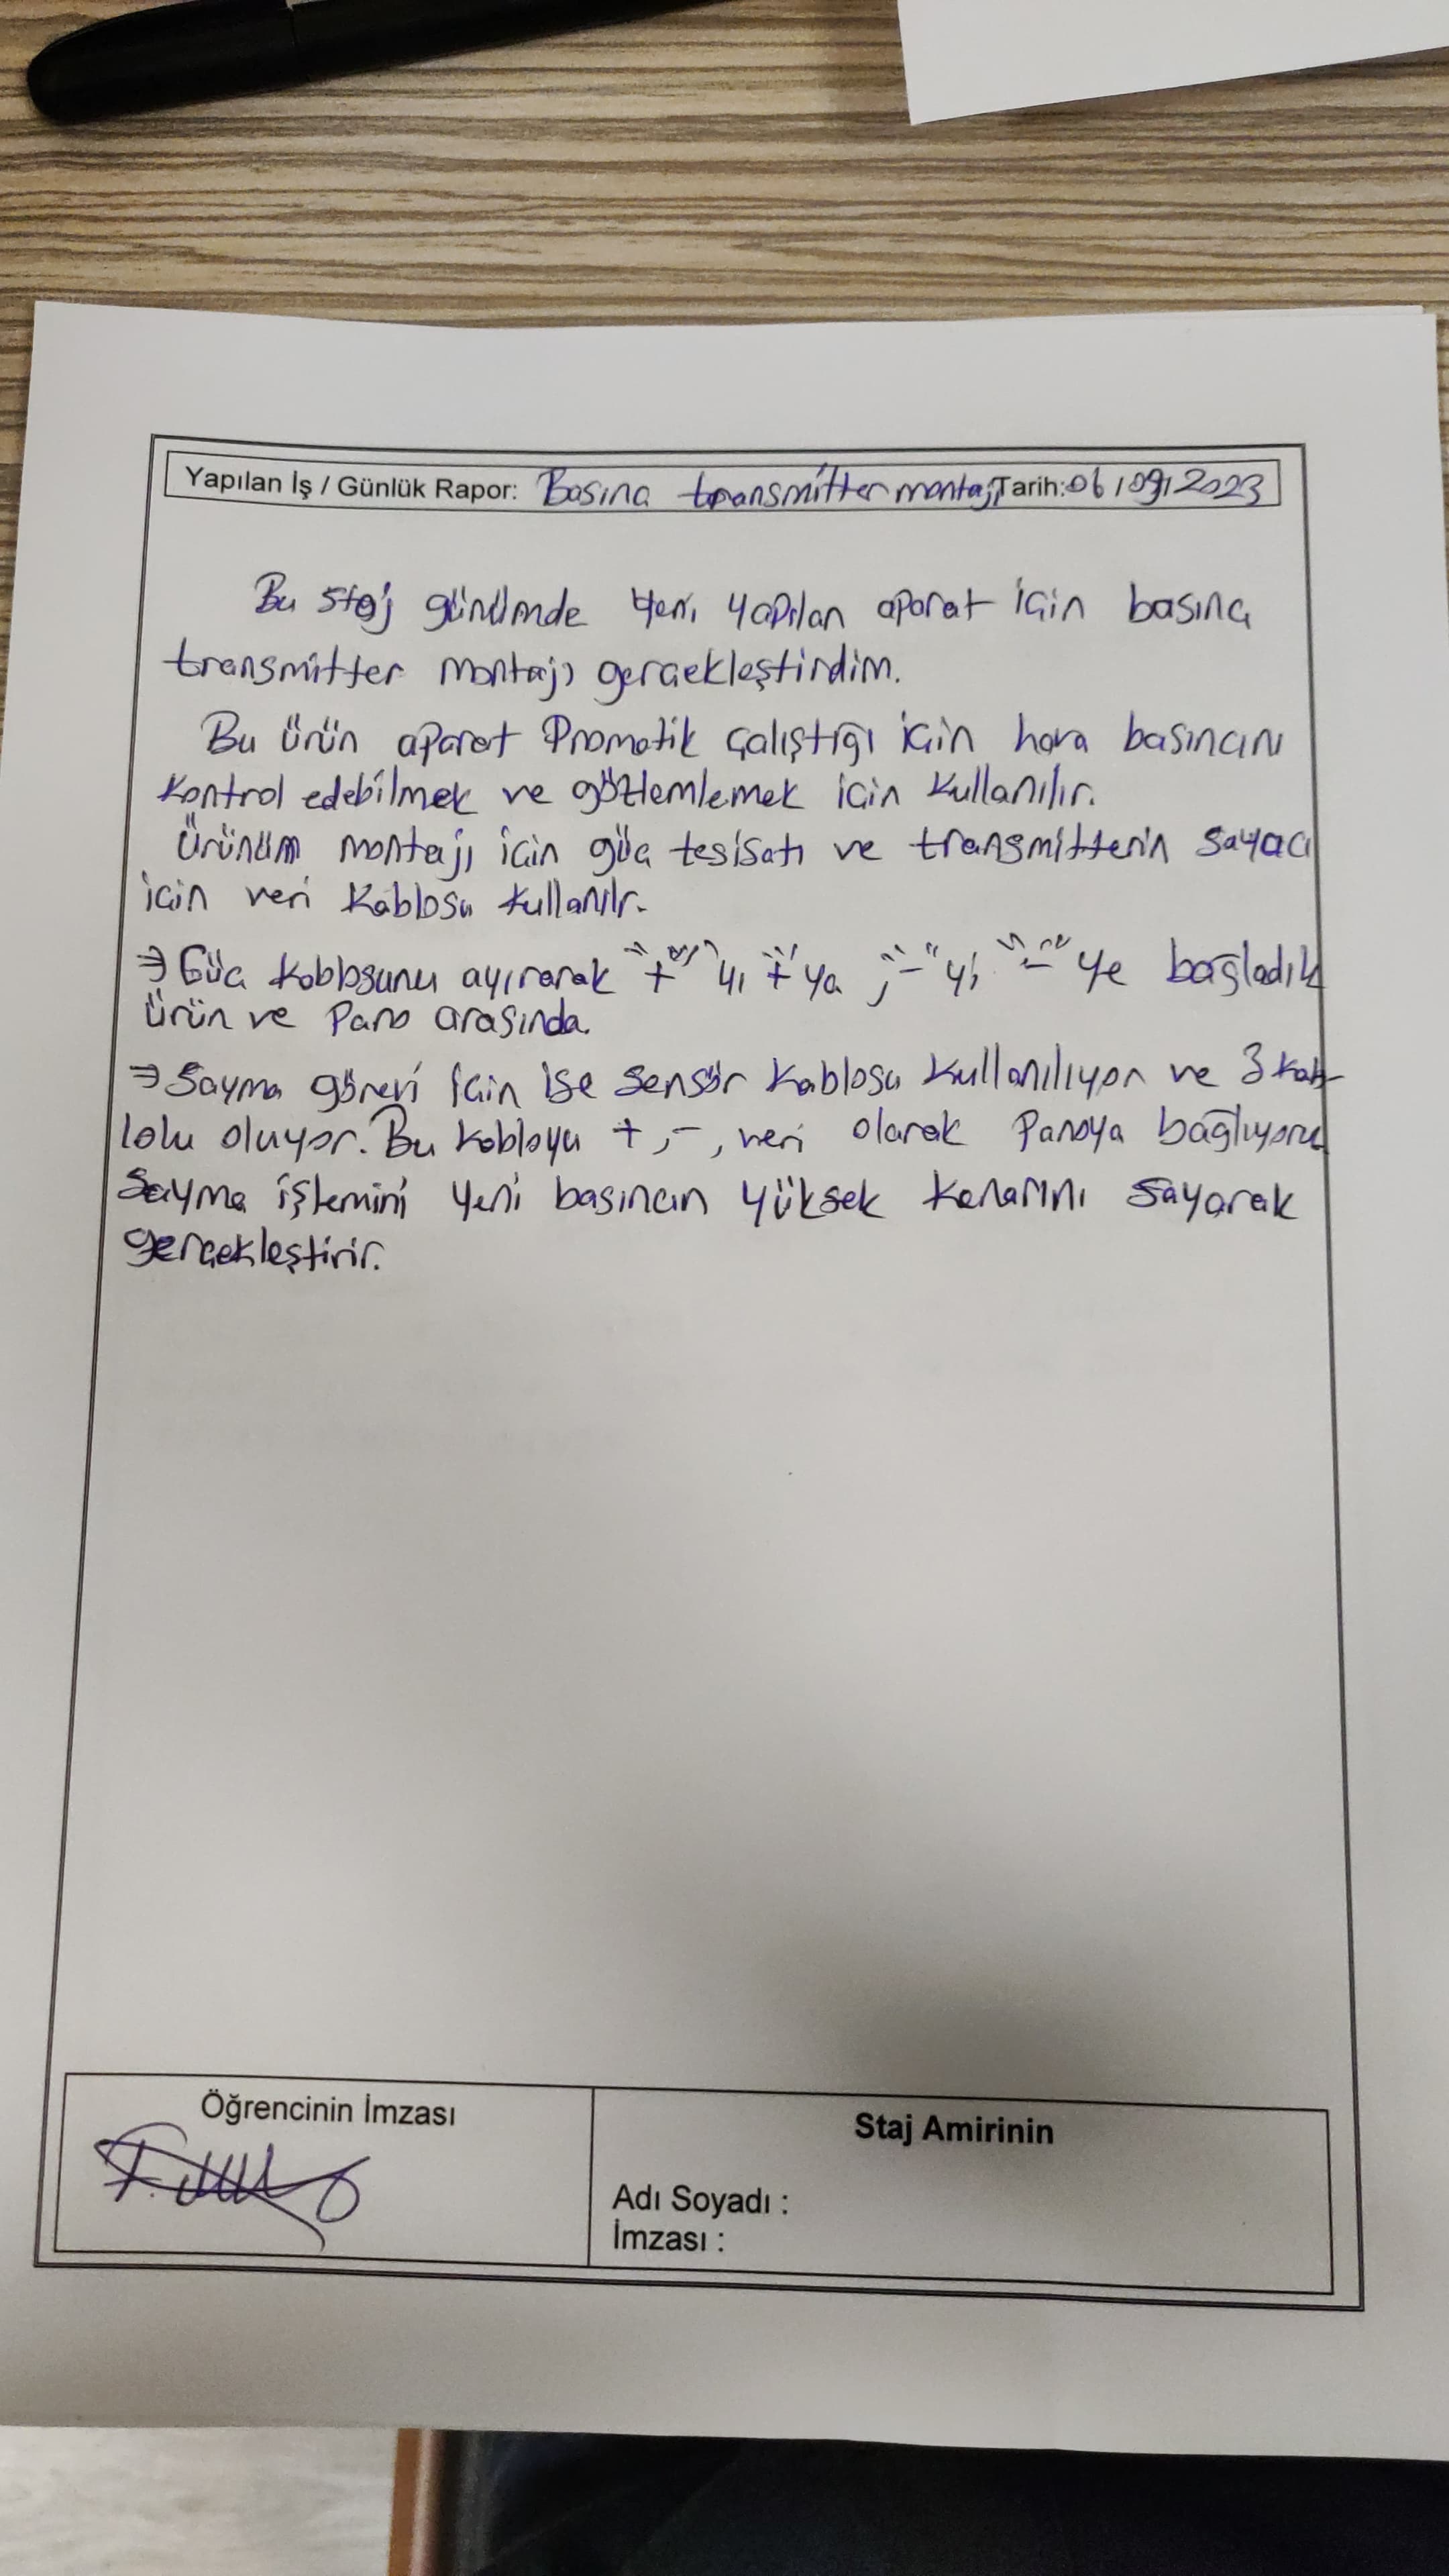 Yapılan İş / Günlük Rapor: Basınç transmitter montajı Tarih: 06/09/2023
Bu staj günümde yeni yapılan aparat için basınç
transmitter montajı gerçekleştirdim.
Bu ürün aparat Pnomatik çalıştığı için hava basıncını
kontrol edebilmek ve gözlemlemek için kullanılır.
Ürünüm montajı için güç tesisatı ve transmitterin sayacı
için veri kablosu kullanılır.
⇒ Güç kablosunu ayırarak "+" yı "+" ya ; "-" yi "-" ye bağladık
ürün ve Pano arasında.
⇒ Sayma görevi için ise sensör kablosu kullanılıyor ve 3 kab-
lolu oluyor. Bu kabloyu +, -, veri olarak Panoya bağlıyoruz
Sayma işlemini yeni basıncın yüksek kenarını sayarak
gerçekleştirir.
Öğrencinin İmzası
Staj Amirinin
Adı Soyadı :
İmzası :